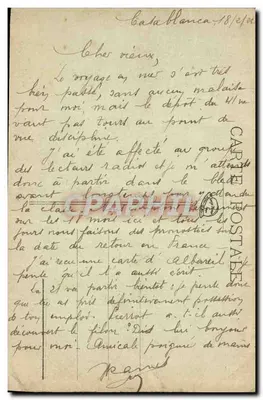 Casablanca, 18/2/
Cher vieux,
Le voyage en mer s'est très
bien passé, sans aucun malaise
pour moi, mais le dépôt du
vaut pas Tours au point de
vue discipline.
J'ai été affecté au groupe
des lecteurs radios et je m'attends
donc à partir dans le bled
avant longtemps
sur les mois ici et tous les
jours nous faisons des pronostics sur
la date du retour en France
J'ai reçu une carte d'Albareil
qu'il t'a aussi écrit.
La 21 va partir bientôt: je pense donc
que tu as pris définitivement possession
de ton emploi. Pierrot a-t-il aussi
découvert le filon? Dis lui bonjour
pour moi. Amicale poignée de mains
CARTE POSTALE
CPAPHIL.COM